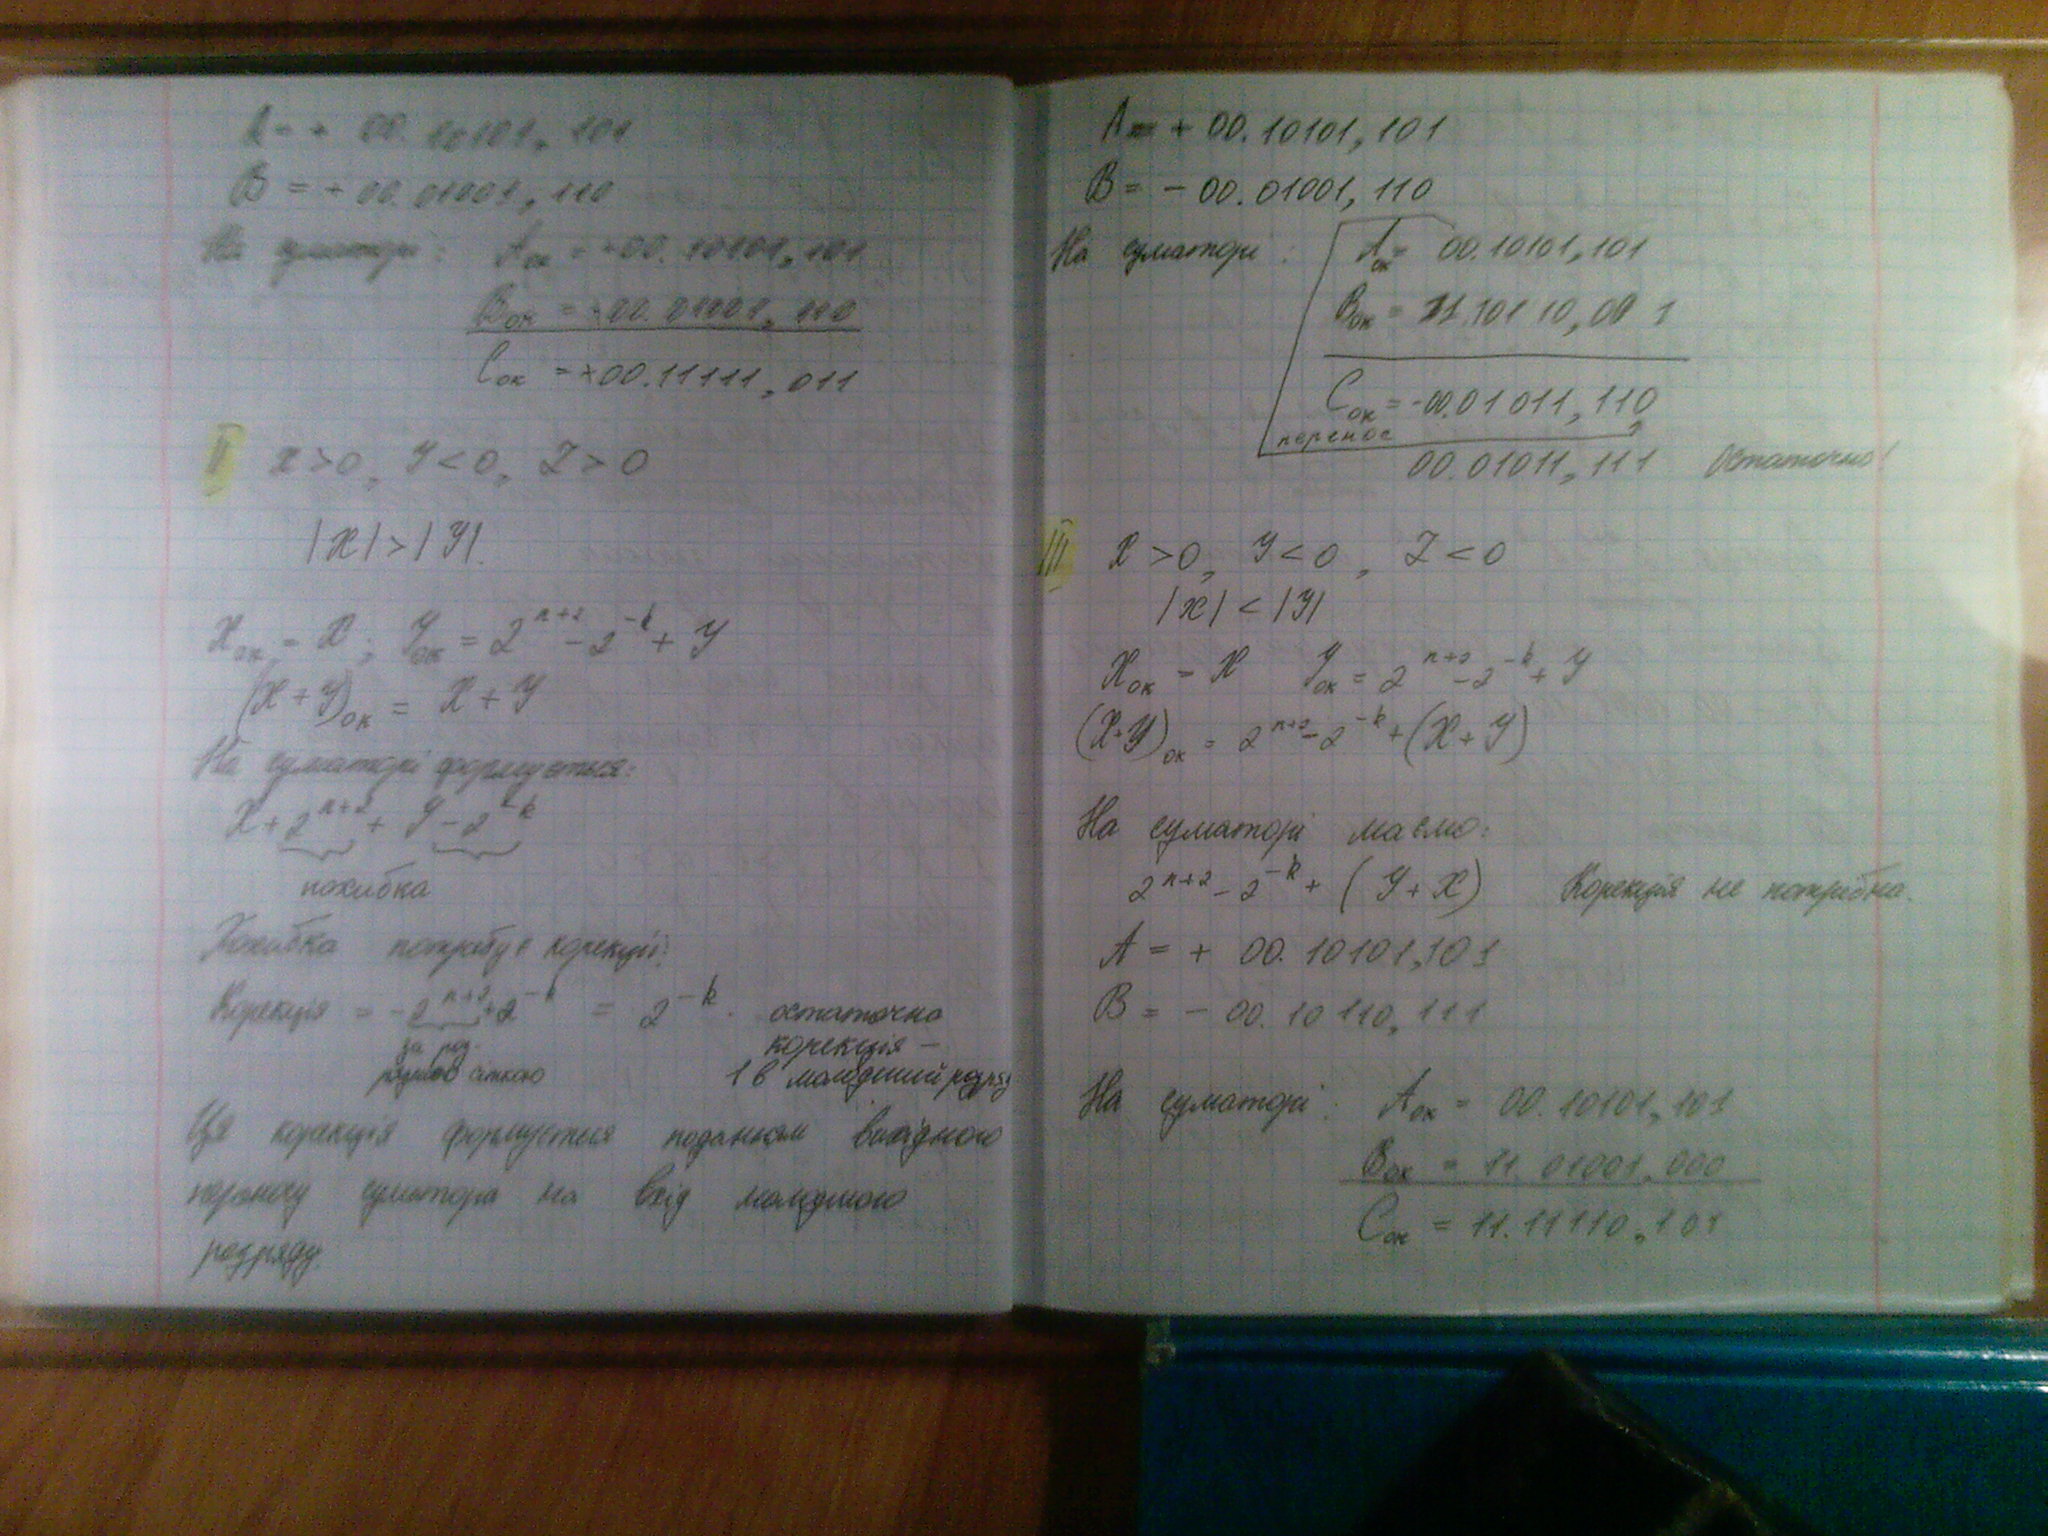 A = + 00.10101,101
B = + 00.01001,110
На суматорі: Aок = +00.10101,101
Bок = +00.01001,110
Cок = +00.11111,011
II x>0, y<0, Z>0
|X|>|Y|.
Xок = X; Yок = 2^(n+2) - 2^(-k) + Y
(X+Y)ок = X+Y
На суматорі формується:
X + 2^(n+2) + Y - 2^(-k)
похибка
Похибка потребує корекції:
Корекція = -2^(n+2) + 2^(-k) = 2^(-k). остаточно
корекція –
за роз-
рядною сіткою 1 в молодший розряд
Ця корекція формується поданням вихідного
переносу суматора на вхід молодшого
розряду.
A = + 00.10101,101
B = - 00.01001,110
На суматорі: Aок = 00.10101,101
Bок = 11.10110,001
Cок = 00.01011,110
перенос
00.01011,111 Остаточно!
III X>0, Y<0, Z<0
|X|<|Y|
Xок = X Yок = 2^(n+2) - 2^(-k) + Y
(X+Y)ок = 2^(n+2) - 2^(-k) + (X+Y)
На суматорі маємо:
2^(n+2) - 2^(-k) + (Y+X) Корекція не потрібна.
A = + 00.10101,101
B = - 00.10110,111
На суматорі: Aок = 00.10101,101
Bок = 11.01001,000
Cок = 11.11110,101